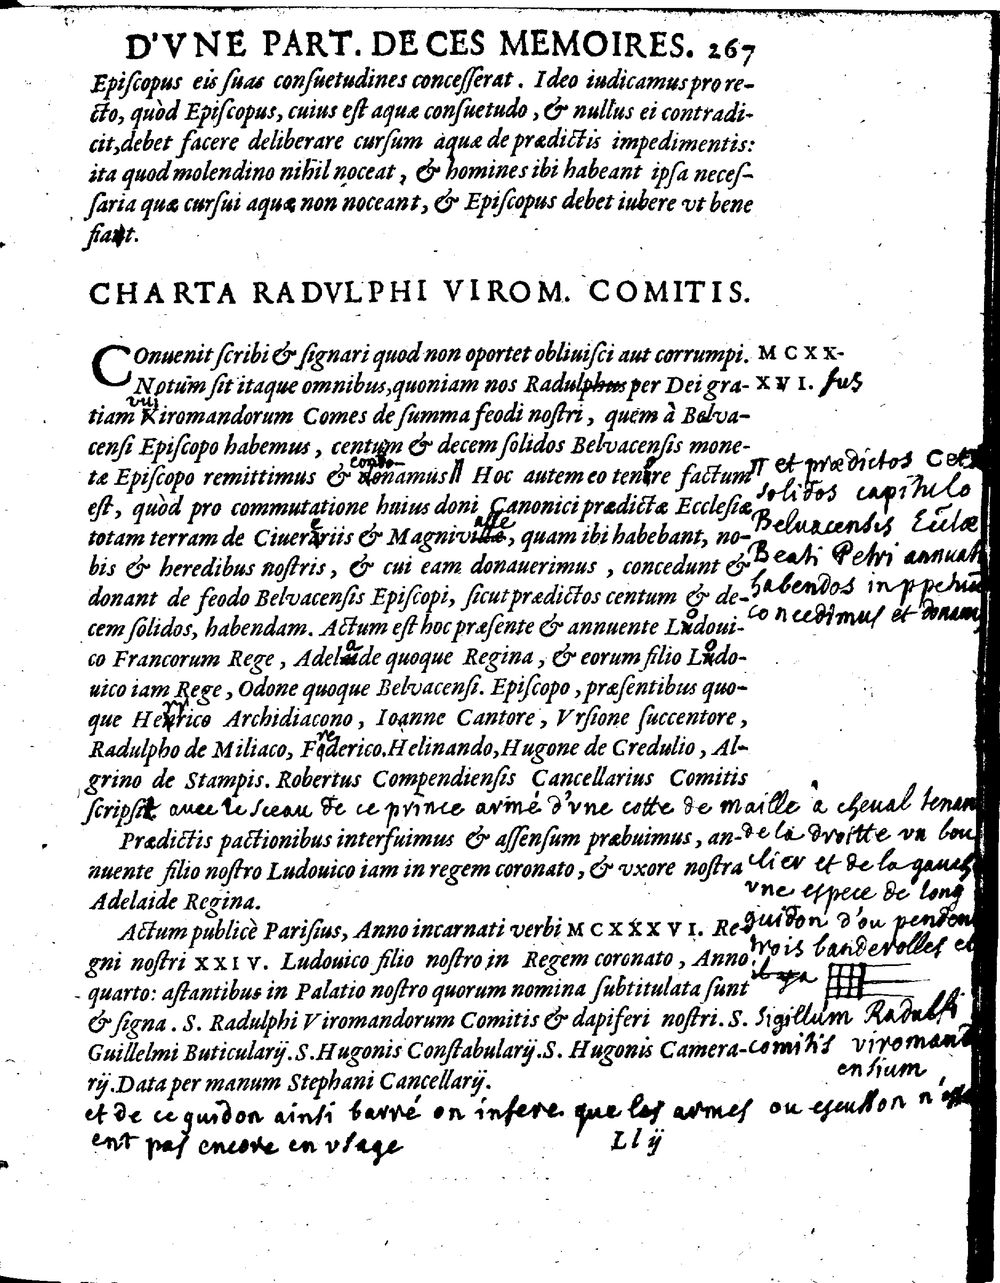 D'VNE PART. DE CES MEMOIRES. 267
Epiſcopus eis ſuas conſuetudines conceſſerat. Ideo iudicamus pro re-
cto, quòd Epiſcopus, cuius eſt aquæ conſuetudo, & nullus ei contradi-
cit, debet facere deliberare curſum aquæ de prædictis impedimentis:
ita quod molendino nihil noceat, & homines ibi habeant ipſa neceſ-
ſaria quæ curſui aquæ non noceant, & Epiſcopus debet iubere vt bene
fiant.
CHARTA RADVLPHI VIROM. COMITIS.
COnuenit ſcribi & ſignari quod non oportet obliuiſci aut corrumpi. MCXX-
Notum ſit itaque omnibus, quoniam nos Radulphus per Dei gra- XVI. fus
tiam Viromandorum Comes de ſumma feodi noſtri, quem à Belva-
cenſi Epiſcopo habemus, centum & decem ſolidos Belvacenſis mone-
tæ Epiſcopo remittimus & donamus Hoc autem eo tenore factum
eſt, quòd pro commutatione huius doni Canonici prædictæ Eccleſiæ
totam terram de Ciueriis & Magniville, quam ibi habebant, no-
bis & heredibus noſtris, & cui eam donauerimus, concedunt &
donant de feodo Belvacenſis Epiſcopi, ſicut prædictos centum & de-
cem ſolidos, habendam. Actum eſt hoc præſente & annuente Ludoui-
co Francorum Rege, Adelaide quoque Regina, & eorum filio Ludo-
uico iam Rege, Odone quoque Belvacenſi. Epiſcopo, præſentibus quo-
que Henrico Archidiacono, Ioanne Cantore, Vrſione ſuccentore,
Radulpho de Miliaco, Federico. Helinando, Hugone de Credulio, Al-
grino de Stampis. Robertus Compendienſis Cancellarius Comitis
ſcripſit. auec le sceau de ce prince armé d'vne cotte de maille à cheual tenan
Prædictis pactionibus interfuimus & aſſenſum præbuimus, an-
nuente filio noſtro Ludouico iam in regem coronato, & vxore noſtra
Adelaide Regina.
Actum publicè Pariſius, Anno incarnati verbi MCXXXVI. Re-
gni noſtri XXIV. Ludouico filio noſtro in Regem coronato, Anno
quarto: aſtantibus in Palatio noſtro quorum nomina ſubtitulata ſunt
& ſigna. S. Radulphi Viromandorum Comitis & dapiferi noſtri. S.
Guillelmi Buticularij. S. Hugonis Conſtabularij. S. Hugonis Camera-
rij. Data per manum Stephani Cancellarij.
et de ce guidon ainsi barré on infere que les armes ou escusson
ent pas encore en vsage
Ll ij
et prædictos
solidos capitulo
Beluacensis Ecclæ
Beati Petri annuati
habendos in ppetuũ
concedimus et donam
de la droitte vn bou
clier et de la gauch
vne espece de long
guidon d'ou penden
trois banderolles et
Sigillum Radulfi
comitis viromand
ensium